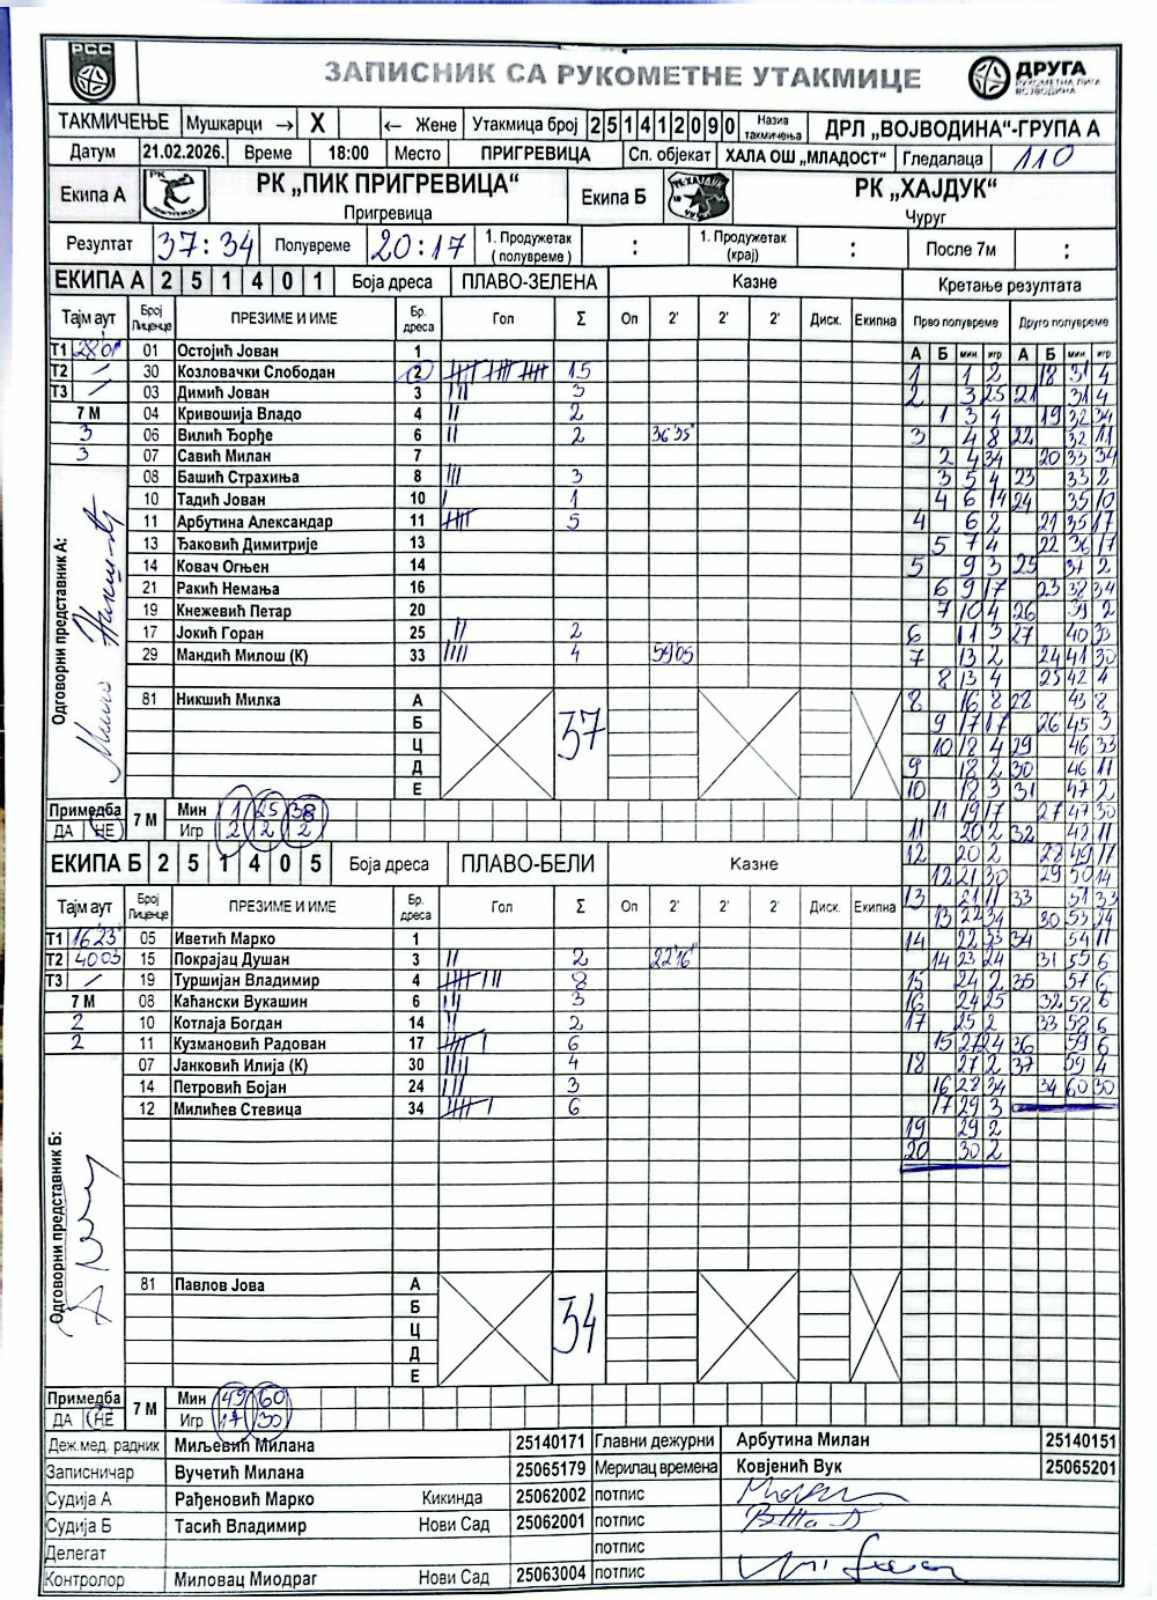 РСС
ЗАПИСНИК СА РУКОМЕТНЕ УТАКМИЦЕ
ДРУГА
РУКОМЕТНА ЛИГА
ВОЈВОДИНА
ТАКМИЧЕЊЕ Мушкарци → X ← Жене Утакмица број 251412090 Назив такмичења ДРЛ „ВОЈВОДИНА“-ГРУПА А
Датум 21.02.2026. Време 18:00 Место ПРИГРЕВИЦА Сп. објекат ХАЛА ОШ „МЛАДОСТ“ Гледалаца 110
Екипа А РК „ПИК ПРИГРЕВИЦА“ Пригревица Екипа Б РК „ХАЈДУК“ Чуруг
Резултат 37:34 Полувреме 20:17 1. Продужетак (полувреме) : 1. Продужетак (крај) : После 7м :
ЕКИПА А 2 5 1 4 0 1 Боја дреса ПЛАВО-ЗЕЛЕНА Казне Кретање резултата
Тајм аут Број Лиценце ПРЕЗИМЕ И ИМЕ Бр. дреса Гол Σ Оп 2' 2' 2' Диск. Екипна Прво полувреме Друго полувреме
А Б мин игр А Б мин игр
Т1 2801 01 Остојић Јован 1
Т2 / 30 Козловачки Слободан 2 15
Т3 / 03 Димић Јован 3 3
7 М 04 Кривошија Владо 4 2
3 06 Вилић Ђорђе 6 2 36'35"
3 07 Савић Милан 7
08 Башић Страхиња 8 3
10 Тадић Јован 10 1
11 Арбутина Александар 11 5
13 Ђаковић Димитрије 13
14 Ковач Огњен 14
21 Ракић Немања 16
19 Кнежевић Петар 20
17 Јокић Горан 25 2
29 Мандић Милош (К) 33 4 5905
81 Никшић Милка А 37
Б
Ц
Д
Е
Одговорни представник А:
Примедба 7 М Мин 1 25 38
ДА НЕ Игр 2 2 2
ЕКИПА Б 2 5 1 4 0 5 Боја дреса ПЛАВО-БЕЛИ Казне
Тајм аут Број Лиценце ПРЕЗИМЕ И ИМЕ Бр. дреса Гол Σ Оп 2' 2' 2' Диск. Екипна
Т1 1623 05 Иветић Марко 1
Т2 4003 15 Покрајац Душан 3 2 22'16"
Т3 / 19 Туршијан Владимир 4 8
7 М 08 Каћански Вукашин 6 3
2 10 Котлаја Богдан 14 2
2 11 Кузмановић Радован 17 6
07 Јанковић Илија (К) 30 4
14 Петровић Бојан 24 3
12 Милићев Стевица 34 6
81 Павлов Јова А 34
Б
Ц
Д
Е
Одговорни представник Б:
Примедба 7 М Мин 49 60
ДА НЕ Игр 17 30
1 1 2 18 31 4
2 3 25 21 31 4
1 3 4 19 32 34
3 4 8 22 32 11
2 4 34 20 33 34
3 5 4 23 33 2
4 6 14 24 35 10
4 6 2 21 35 17
5 7 4 22 36 17
5 9 3 25 37 2
6 9 17 23 38 34
7 10 4 26 39 2
6 11 3 27 40 33
7 13 2 24 41 30
8 13 4 25 42 4
8 16 8 28 43 8
9 17 17 26 45 3
10 18 4 29 46 33
9 18 2 30 46 11
10 18 3 31 47 2
11 19 17 27 47 30
11 20 2 32 42 11
12 20 2 28 49 17
12 21 30 29 50 14
13 21 11 33 51 33
13 22 34 30 53 24
14 22 33 34 54 11
14 23 24 31 55 6
15 24 2 35 57 6
16 24 25 32 58 6
17 25 2 33 58 6
15 27 24 36 59 6
18 27 2 37 59 4
16 28 34 34 60 30
17 29 3
19 29 2
20 30 2
Деж.мед. радник Миљевић Милана 25140171 Главни дежурни Арбутина Милан 25140151
Записничар Вучетић Милана 25065179 Мерилац времена Ковјенић Вук 25065201
Судија А Рађеновић Марко Кикинда 25062002 потпис
Судија Б Тасић Владимир Нови Сад 25062001 потпис
Делегат потпис
Контролор Миловац Миодраг Нови Сад 25063004 потпис